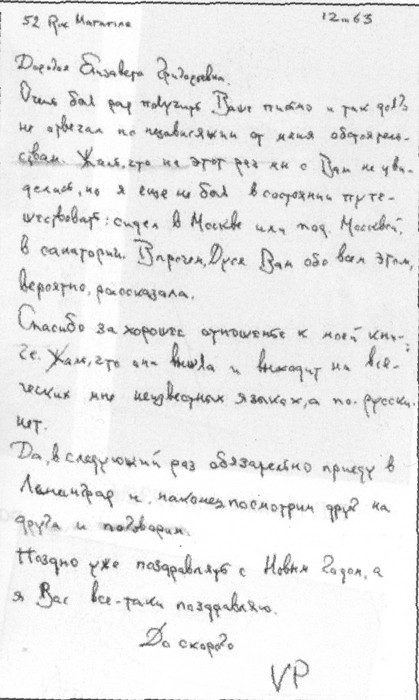 52 Rue Mazarine 12 III 63
Дорогая Елизавета Григорьевна.
Очень был рад получить Ваше письмо и так долго
не отвечал по независящим от меня обстоятель-
ствам. Жаль, что на этот раз мы с Вами не уви-
делись, но я еще не был в состоянии путе-
шествовать: сидел в Москве или под Москвой,
в санатории. Впрочем, Дуся Вам обо всем этом,
вероятно, рассказала.
Спасибо за хорошее отношенье к моей кни-
ге. Жаль, что она вышла и выходит на вся-
ческих мне неизвестных языках, а по-русски
нет.
Да, в следующий раз обязательно приеду в
Ленинград и наконец посмотрим друг на
друга и поговорим.
Поздно уже поздравлять с Новым Годом, а
я Вас все-таки поздравляю.
До скорого
VP